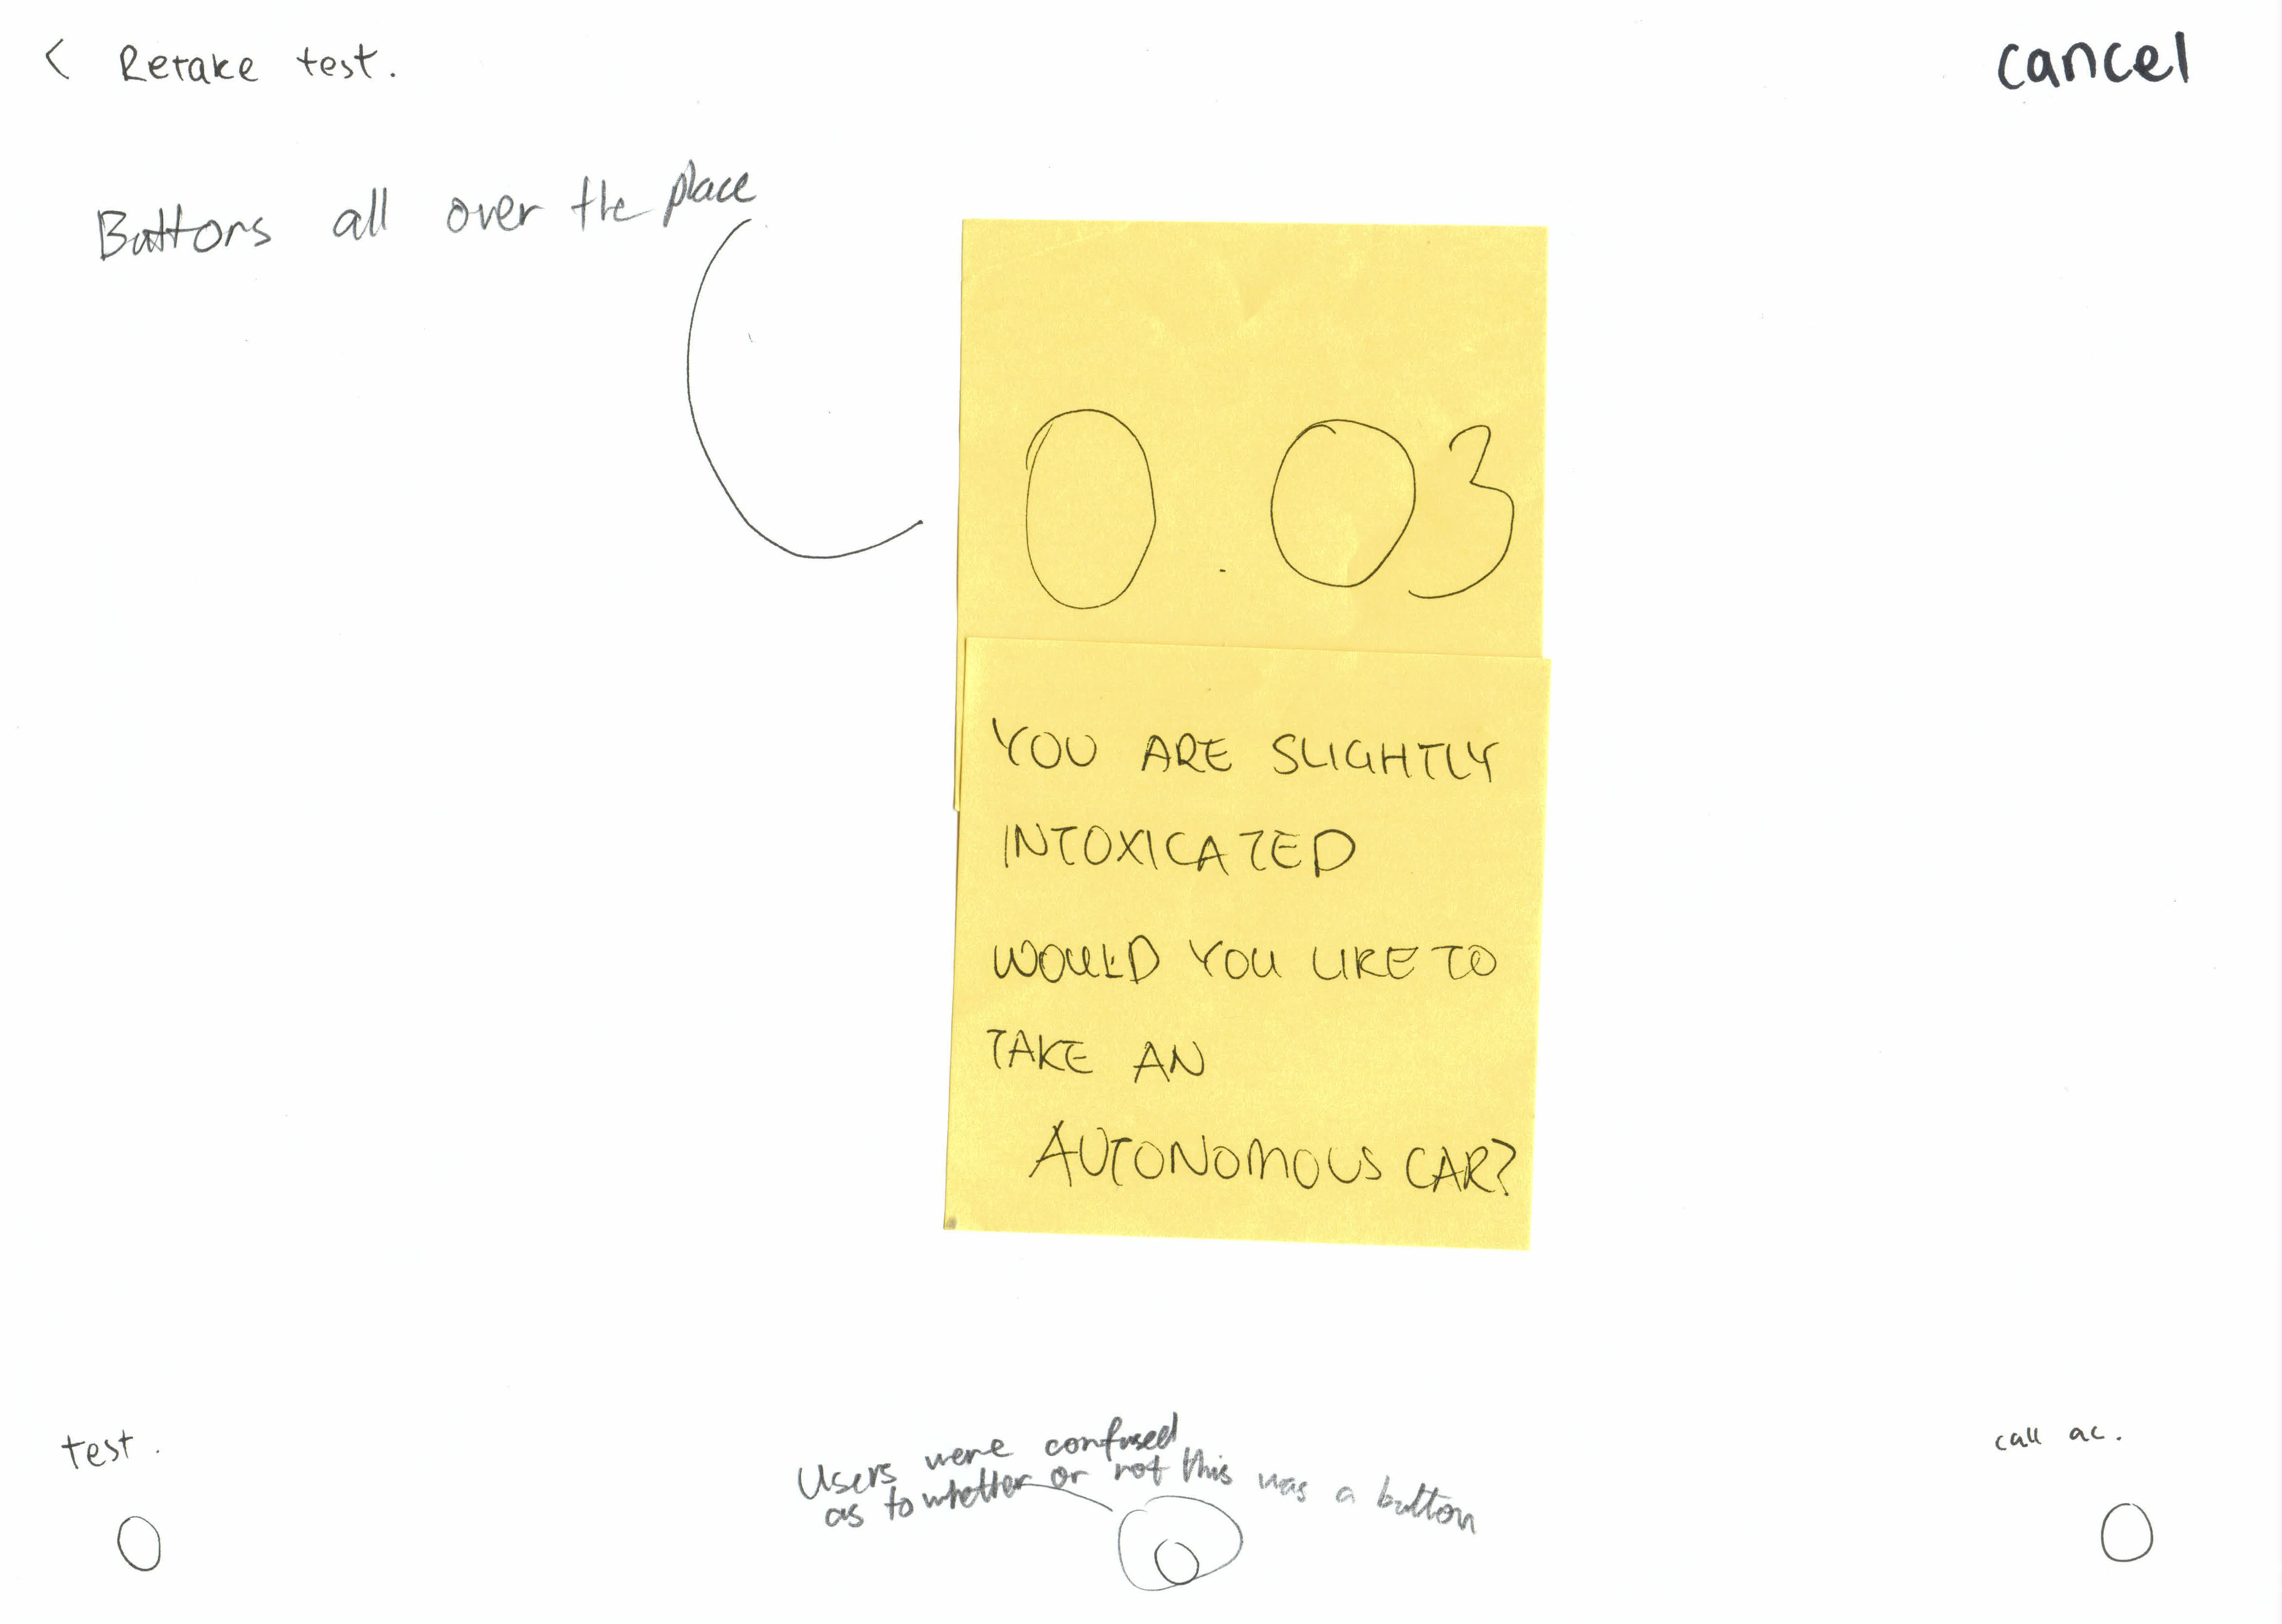 < Retake test.
cancel
Buttons all over the place
0.03
YOU ARE SLIGHTLY
INTOXICATED
WOULD YOU LIKE TO
TAKE AN
AUTONOMOUS CAR?
test.
call ac.
Users were confused
as to whether or not this was a button